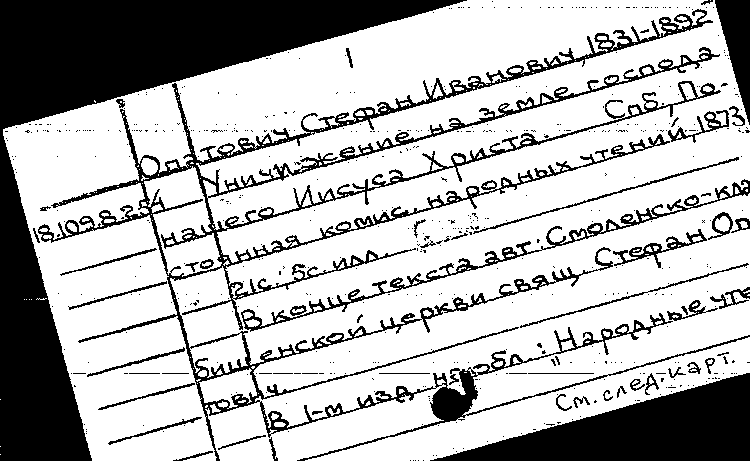 1
Опатович, Стефан Иванович, 1831-1892
18.109.8.254 Уничижение на земле господа
нашего Иисуса Христа. СПб, По-
стоянная комис. народных чтений, 1873
21с., 5с. илл.
В конце текста авт: Смоленско-кла
бищенской церкви свящ. Стефан Оп
тович.
В 1-м изд. на обл.: „Народные чте
См. след. карт.